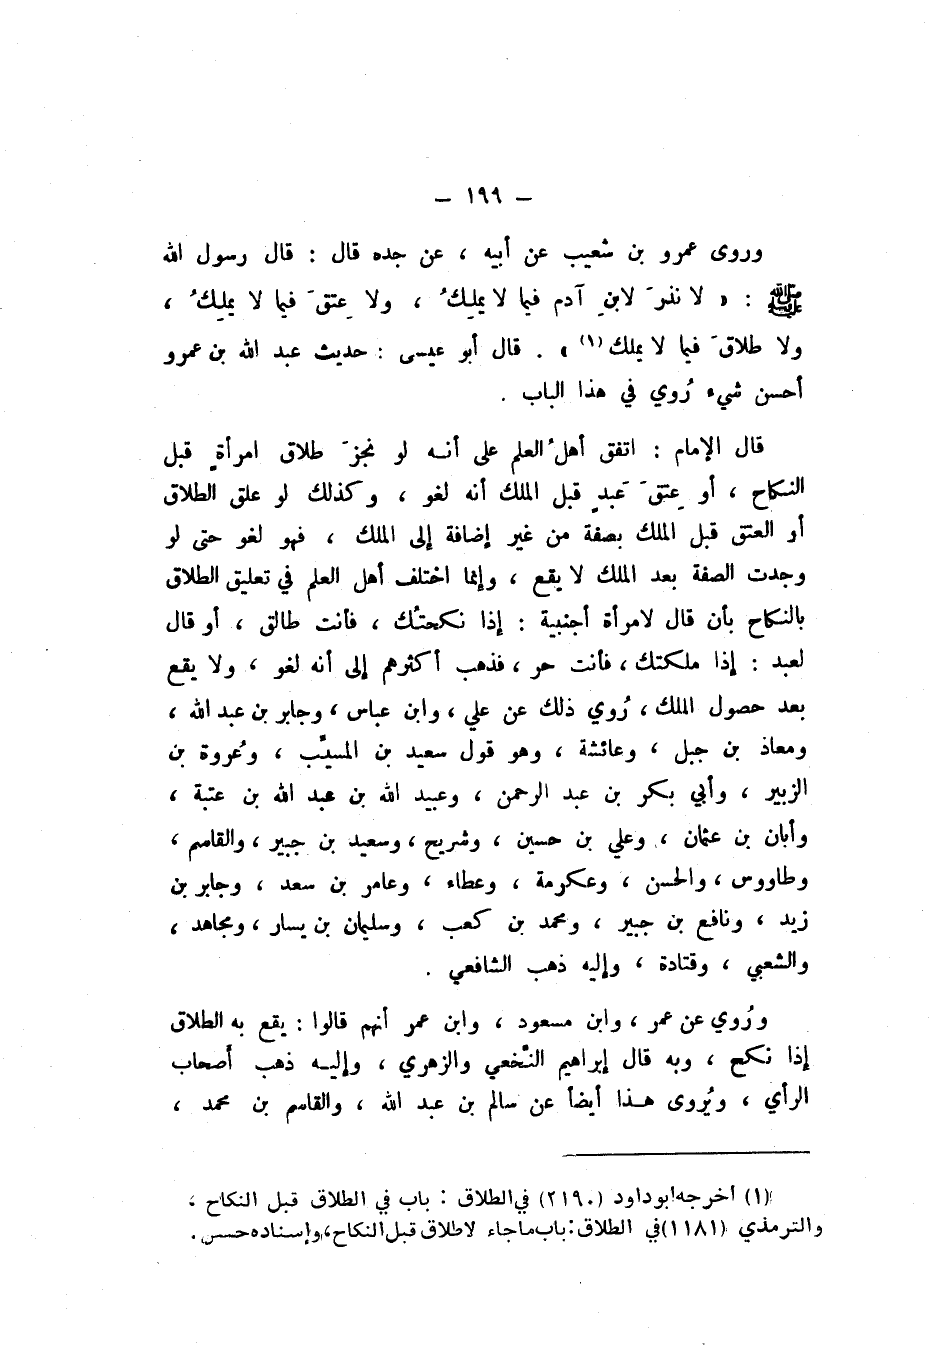 — ١٩٩ —
وروى عمرو بن شعيب عن أبيه ، عن جده قال : قال رسول الله
ﷺ : « لا نذرَ لابنِ آدم فيما لا يملِكُ ، ولا عِتقَ فيما لا يملِكُ ،
ولا طلاقَ فيما لا يملك (١) » . قال أبو عيسى : حديث عبد الله بن عمرو
أحسن شيء رُوي في هذا الباب .
قال الإمام : اتفق أهلُ العلم على أنه لو نجزَ طلاق امرأةٍ قبل
النكاح ، أو عِتقَ عَبدٍ قبل الملك أنه لغو ، وكذلك لو علق الطلاق
أو العتق قبل الملك بصفة من غير إضافة إلى الملك ، فهو لغو حتى لو
وجدت الصفة بعد الملك لا يقع ، وإنما اختلف أهل العلم في تعليق الطلاق
بالنكاح بأن قال لامرأة أجنبية : إذا نكحتُك ، فأنت طالق ، أو قال
لعبد : إذا ملكتك ، فأنت حر ، فذهب أكثرهم إلى أنه لغو ، ولا يقع
بعد حصول الملك ، رُوي ذلك عن علي ، وابن عباس ، وجابر بن عبد الله ،
ومعاذ بن جبل ، وعائشة ، وهو قول سعيد بن المسيَّب ، وعُروة بن
الزبير ، وأبي بكر بن عبد الرحمن ، وعبيد الله بن عبد الله بن عتبة ،
وأبان بن عثمان ، وعلي بن حسين ، وشريح ، وسعيد بن جبير ، والقاسم ،
وطاووس ، والحسن ، وعكرمة ، وعطاء ، وعامر بن سعد ، وجابر بن
زيد ، ونافع بن جبير ، ومحمد بن كعب ، وسليمان بن يسار ، ومجاهد ،
والشعبي ، وقتادة ، وإليه ذهب الشافعي .
ورُوي عن عمر ، وابن مسعود ، وابن عمر أنهم قالوا : يقع به الطلاق
إذا نكح ، وبه قال إبراهيم النَّخعي والزهري ، وإليه ذهب أصحاب
الرأي ، ويُروى هذا أيضاً عن سالم بن عبد الله ، والقاسم بن محمد ،
(١) أخرجه أبو داود (٢١٩٠) في الطلاق : باب في الطلاق قبل النكاح ،
والترمذي (١١٨١) في الطلاق : باب ما جاء لا طلاق قبل النكاح ، وإسناده حسن .